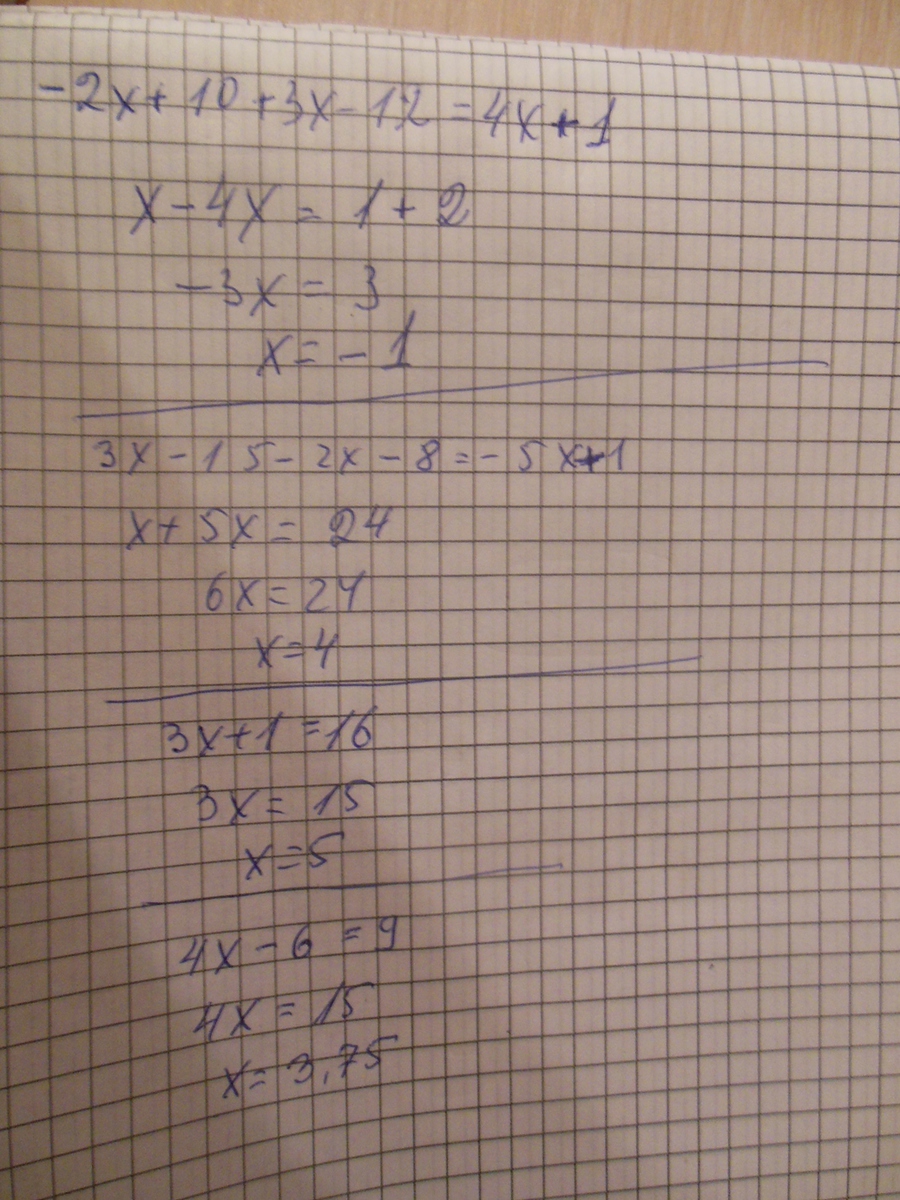 -2x+10+3x-12=4x+1
x-4x=1+2
-3x=3
x=-1
3x-15-2x-8=-5x+1
x+5x=24
6x=24
x=4
3x+1=16
3x=15
x=5
4x-6=9
4x=15
x=3,75